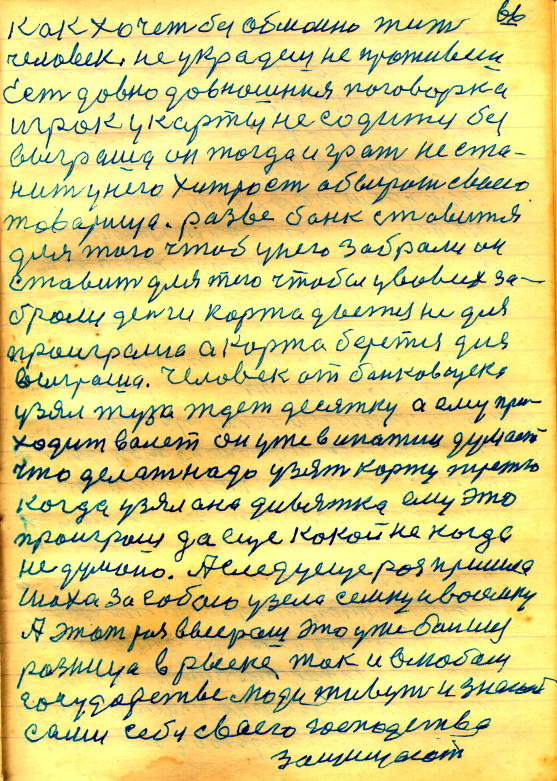 66
как хочет бы обмомно жит
человек. не украдеш не проживеш
ест довно довношния поговорка
игрок у карты не содитц бы
выграша он тогда играт не ста-
нит у него хитрост абыграт своего
товарища. разве банк ставитя
для того чтоб у него забрали он
ставит для тего чтобы у вових за-
броли денги карта даетця не для
проиграша а карта беретця для
выиграша. Человек от банковщека
узял туза ждет десятку а ему при-
ходит валет он уже в опатии думает
что делат надо узят карту третю
когда узял ана дивятка ему это
проиграш да еще кокой не когда
не думоно. А следующе роз пришла
шоха за собою узела семку и восемку
А этот роз выеграш это уже болшая
розница в рыске так и в любом
государстве люди живут и знают
сами себя своего господства
защищают